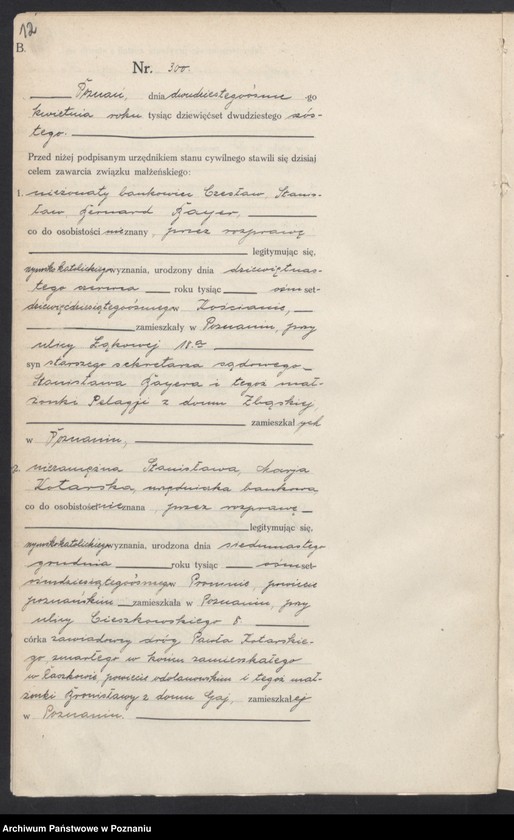 12
B.
Nr. 300.
Poznań, dnia dwudziestegoósme go
kwietnia roku tysiąc dziewięćset dwudziestego szós-
tego.
Przed niżej podpisanym urzędnikiem stanu cywilnego stawili się dzisiaj
celem zawarcia związku małżeńskiego:
1. nieżonaty bankowiec Czesław, Stanis-
ław, Bernard Kayer,
co do osobistości nieznany, przez rozprawę
legitymując się,
rzymskokatolickiego wyznania, urodzony dnia dziewiętnas-
tego czerwca roku tysiąc ośmset-
dziewięćdziesiątegoósmego w Kościanie,
zamieszkały w Poznaniu, przy
ulicy Łąkowej 18.a
syn starszego sekretarza sądowego
Stanisława Kayera i tegoż mał-
żonki Pelagji z domu Zbąskiej,
zamieszkałych
w Poznaniu,
2. niezamężna Stanisława, Marja
Kotarska, urzędniczka bankowa
co do osobistości nieznana przez rozprawę
legitymując się,
rzymskokatolickiego wyznania, urodzona dnia siedmnastego
grudnia roku tysiąc ośmset-
ośmdziesiątegoósmego w powiecie
poznańskim zamieszkała w Poznaniu, przy
ulicy Cieszkowskiego 8
córka zawiadowcy dróg Pawła Kotarskie-
go, zmarłego w końcu zamieszkałego
w Raszkowie, powiecie odolanowskim i tegoż mał-
żonki Bronisławy z domu Gaj, zamieszkałej
w Poznaniu.
Archiwum Państwowe w Poznaniu